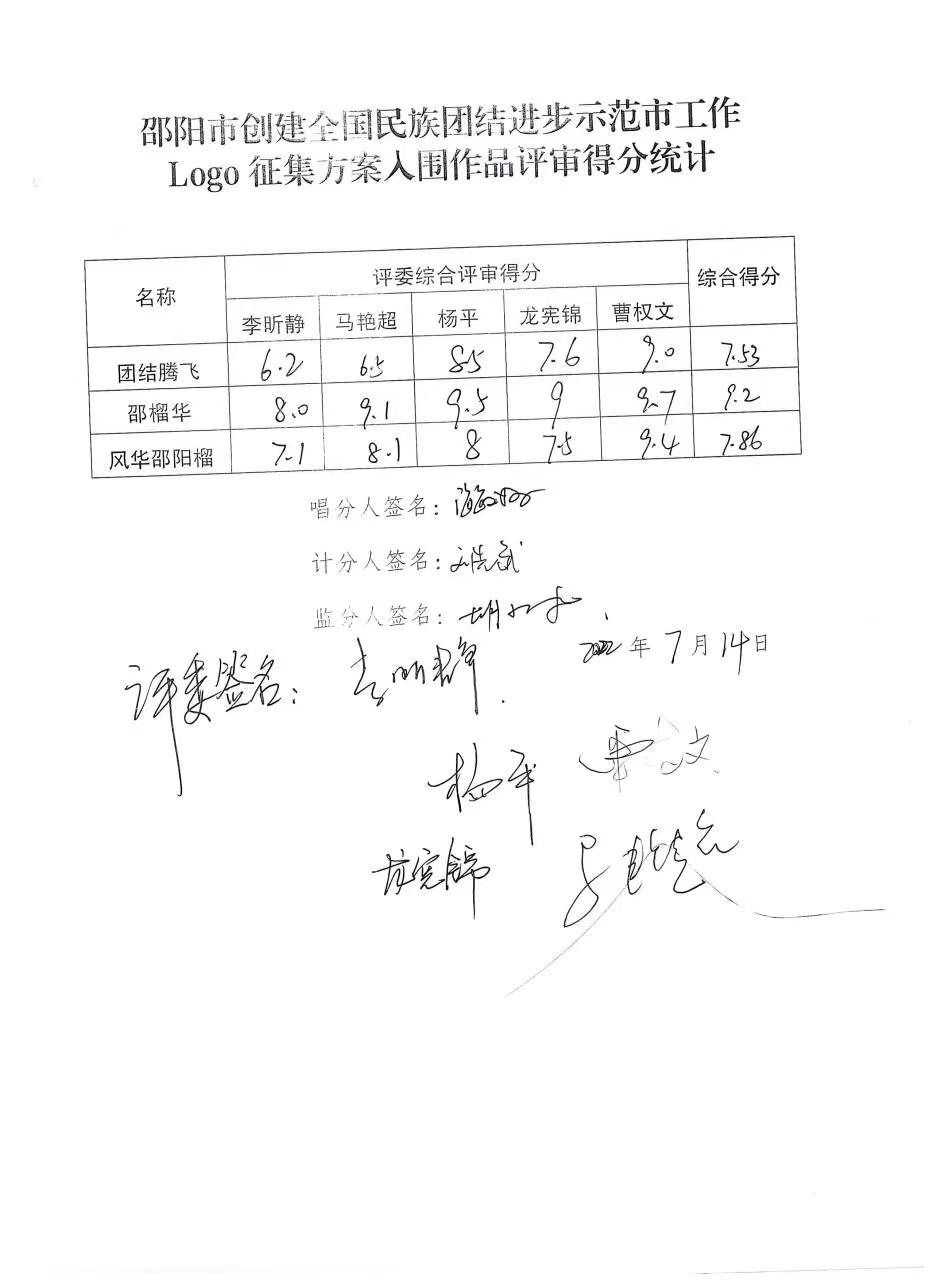 邵阳市创建全国民族团结进步示范市工作
Logo 征集方案入围作品评审得分统计
名称 评委综合评审得分 综合得分
李昕静 马艳超 杨平 龙宪锦 曹权文
团结腾飞 6.2 6.5 8.5 7.6 9.0 7.53
邵榴华 8.0 9.1 9.5 9 9.7 9.2
风华邵阳榴 7.1 8.1 8 7.5 9.4 7.86
唱分人签名：
计分人签名：
监分人签名：
2022年7月14日
评委签名：
杨平
龙宪锦